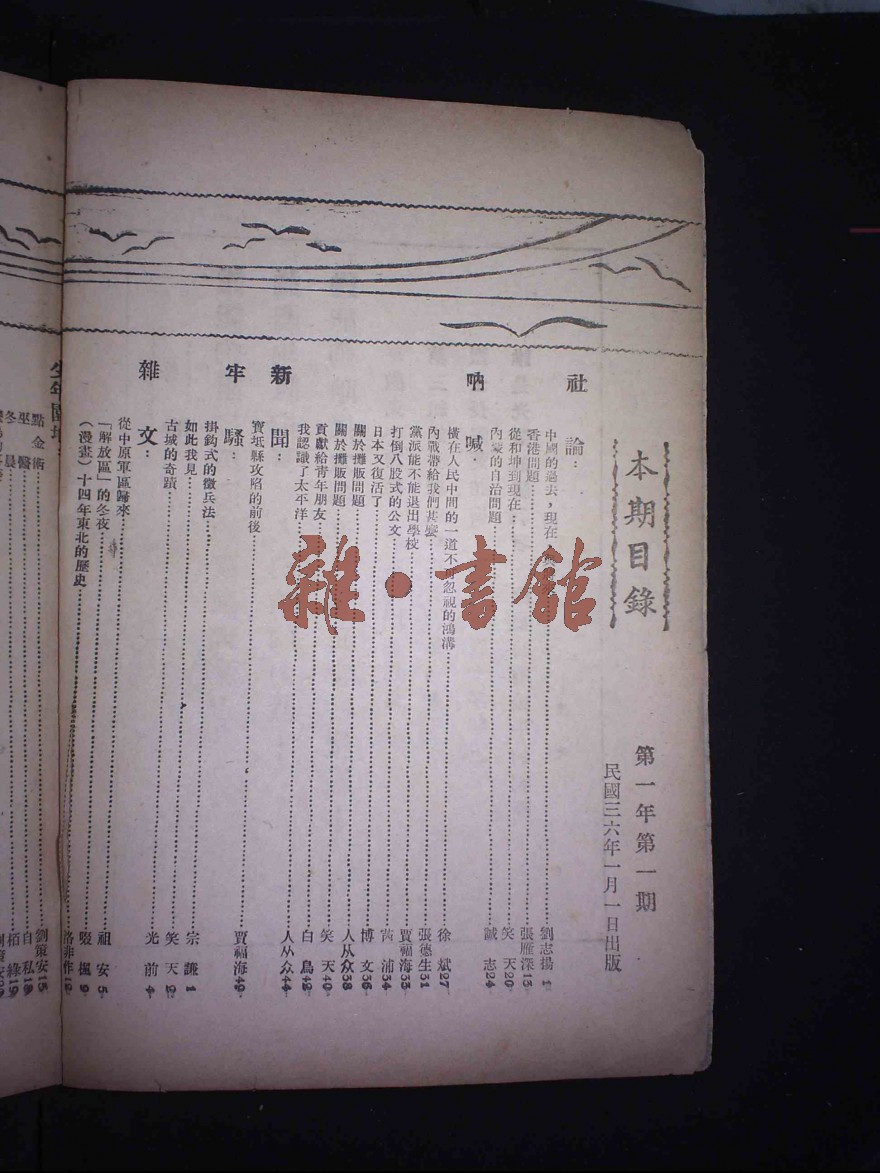 本期目錄
第一年第一期
民國三六年一月一日出版
社論：
中國的過去，現在……劉志揚 1
香港問題……張雁深13
從和坤到現在……笑天20
內蒙的自治問題……誠志24
吶喊：
橫在人民中間的一道不可忽視的鴻溝……徐斌27
內戰帶給我們甚麼……張德生31
黨派能不能退出學校……賈福海33
打倒八股式的公文……浦34
日本又復活了……博文36
關於攤販問題……人从众38
關於攤販問題……笑天40
貢獻給青年朋友……白鳥42
我認識了太平洋……人从众44
新聞：
寶坻縣攻略的前後……賈福海49
牢騷：
掛鈎式的徵兵法……宗謙 1
如此我見……笑天 2
古城的奇蹟……光前 4
雜文：
從中原軍區歸來……祖安 5
「解放區」的冬夜……猋 9
（漫畫）十四年東北的歷史……洛非作12
點金術……劉策安15
巫醫……自私18
冬晨……栢綠19
雜·書館